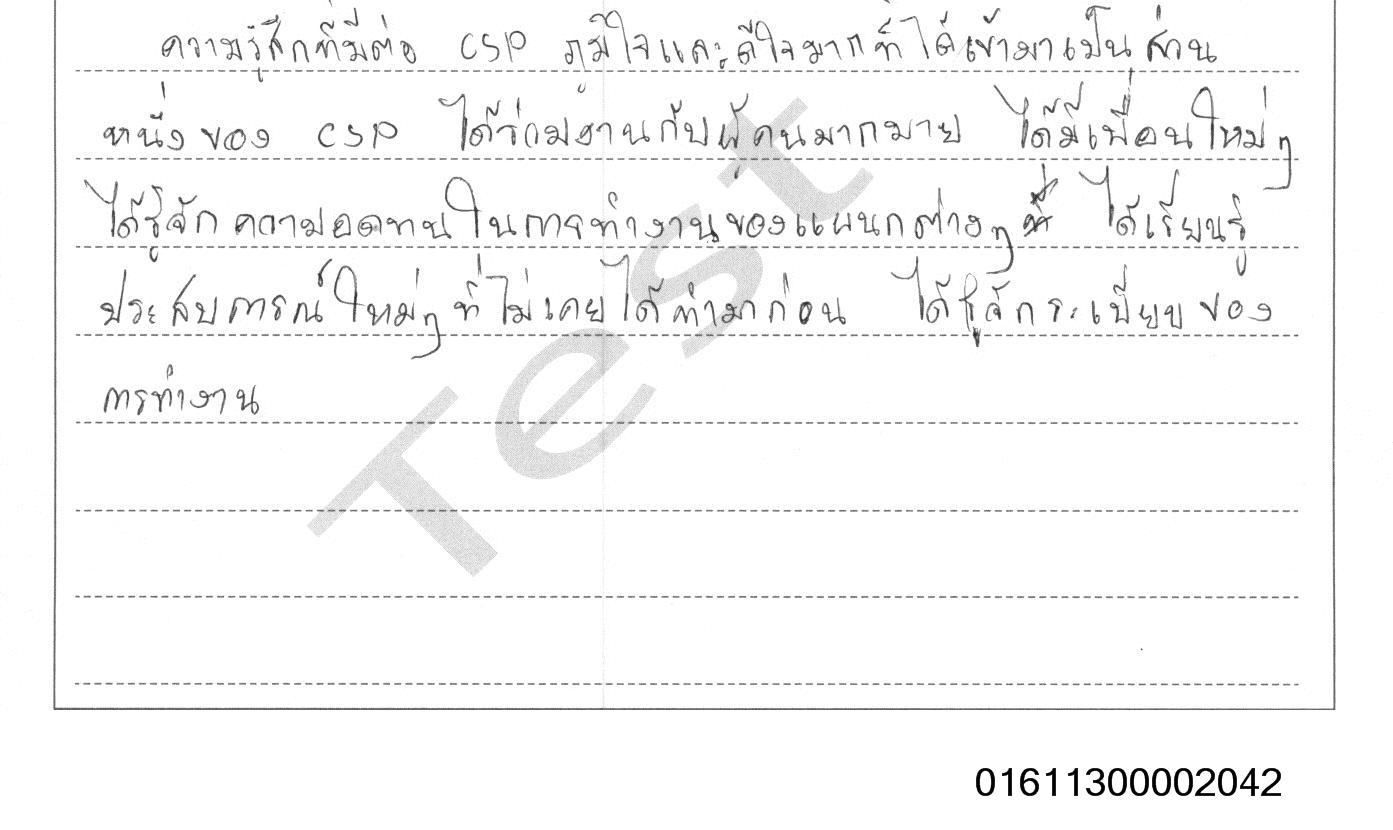 ความรู้สึกที่มีต่อ CSP ภูมิใจและดีใจมากที่ได้เข้ามาเป็นส่วน
หนึ่งของ CSP ได้ร่วมงานกับผู้คนมากมาย ได้มีเพื่อนใหม่ๆ
ได้รู้จักความอดทนในการทำงานของแผนกต่างๆ ได้เรียนรู้
ประสบการณ์ใหม่ๆที่ไม่เคยได้ทำมาก่อน ได้รู้จักระเบียบของ
การทำงาน
Test
01611300002042